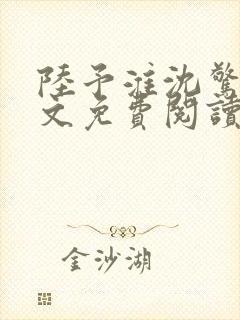 陸予淮沈驚
文免費閱讀
金沙湖